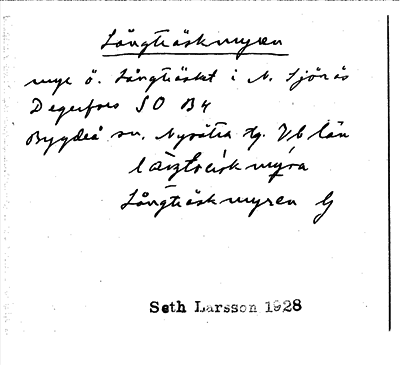 Långträskmyren
myr ö. Långträsket i N. Sjönäs
Degerfors SO B4
Bygdeå sn. Nysätra tg. Vb län
Långträskmyren
Seth Larsson 1928